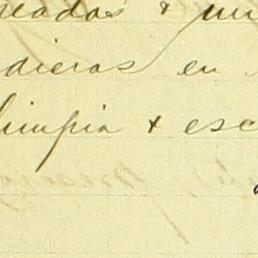 eadas & un
dieras en
limpia & esc